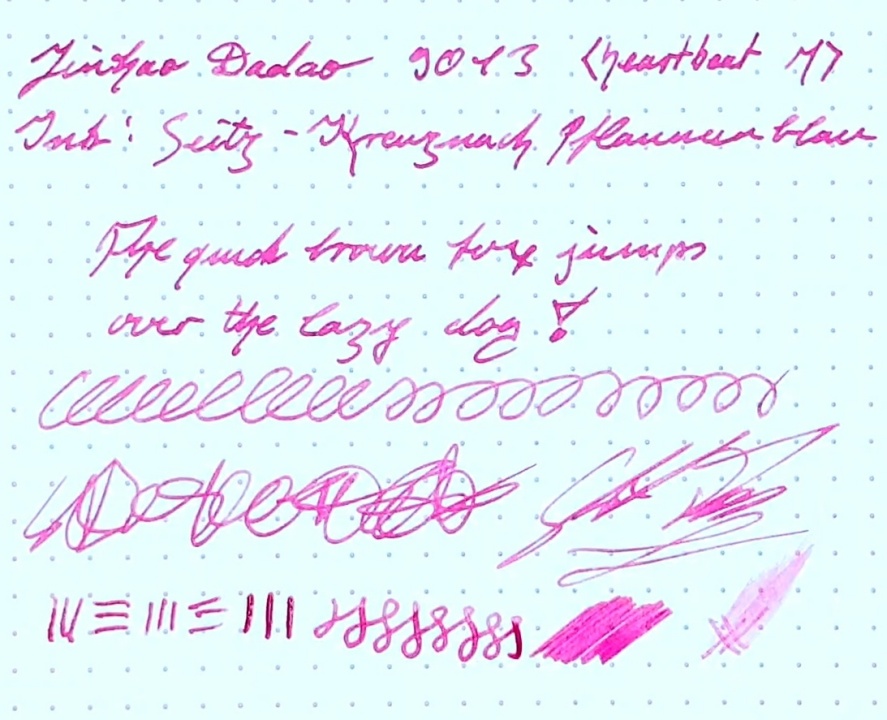 Jinhao Dadao 9013 <heartbeat M>
Ink: Seitz-Kreuznach Pflaumenblau
The quick brown fox jumps
over the lazy dog!